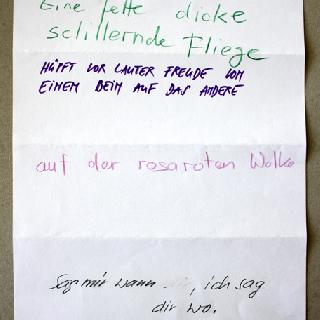 Eine fette dicke
schillernde Fliege
HÜPFT VOR LAUTER FREUDE VON
EINEM BEIN AUF DAS ANDERE
auf der rosaroten Wolke
Sag mir wann, ich sag
dir wo.